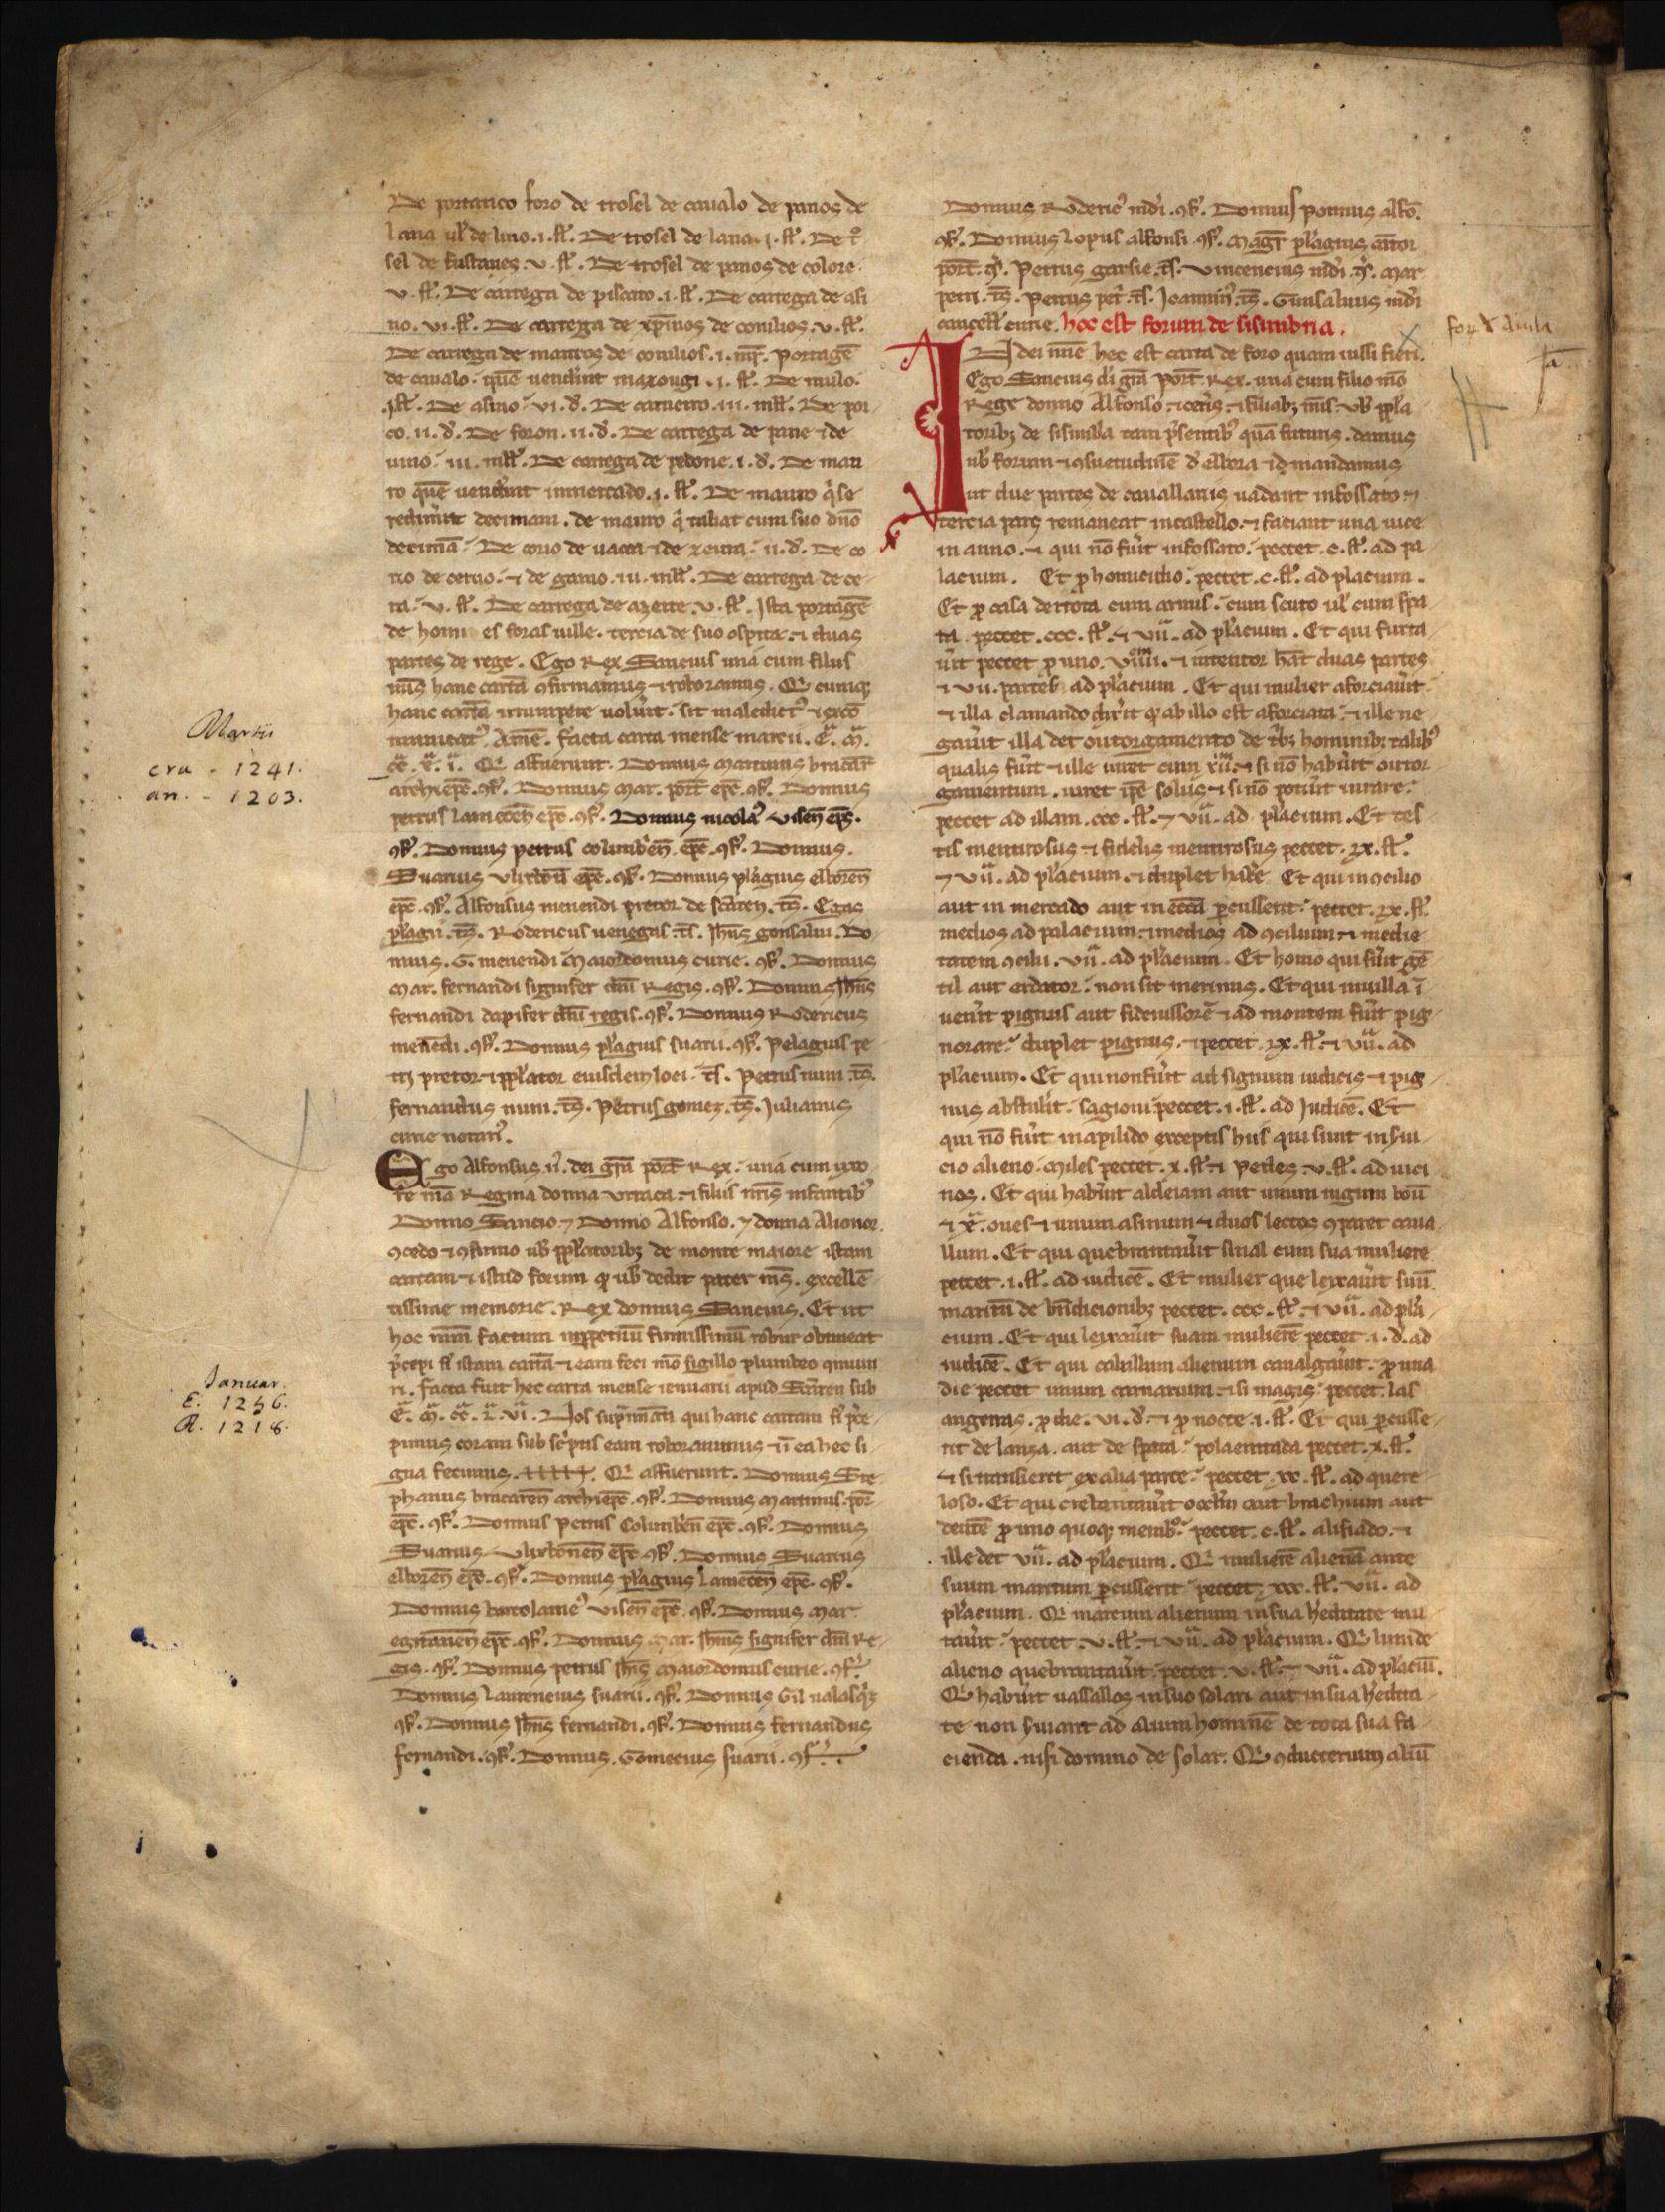 De portatico foro de trosel de cauallo de panos de
lana ul̄ de lino .i. sł. De trosel de lana .i. sł. De t°
sel de fustanes .v. sł. De trosel de panos de colore
v. sł. De carrega de piscato .i. sł. De carrega de asi
no .vi. sł. De carrega de xp̄ianos de conilios .v. sł.
De carrega de mauros de conilios .i. mr̄. Portagē
de cauallo quē uendīnt in azougi .i. sł. De mulo
.i. sł. De asino vi. d̓. De carnero .iii. młł. De por
co .ii. d̓. De foron .ii. d̓. De carrega de pane ⁊ de
uino iii. młł. De carrega de pedone .i. d̓. De mau
ro quē uendīnt in mercado .i. sł. De mauro q̇ se
redimīt decimam. de mauro q̇ tabat cum suo dn̄o
decimā. De corio de uacca ⁊ de zeura ii. d̓. De co
rio de ceruo ⁊ de gamo .iii. młł. De carrega de ce
ra v. sł. De carrega de azeite .v. sł. Ista portagē
de homi es foras uille. tercia de suo ospite ⁊ duas
partes de rege. Ego Rex Sancius una cum filiis
meis hanc cartā ꝯfirmamus ⁊ roboramus. Qi cumq;
hanc cartā irrumpere uolūit. sit maledict᷒ ⁊ excō
municat᷒ Amē. Facta carta mense marcii. E. M.
cc. x. i. Qi affuerunt. Domnus Martinus bracar̄
archiep̄c. ꝯf̓. Domnus Mar. port̄ ep̄c. ꝯf̓. Domnus
petrus lamecēn ep̄c. ꝯf̓. Domnus nicola᷒ visen̄ ep̄s.
ꝯf̓. Domnus petrus colimbr̓en̄ ep̄c. ꝯf̓. Domnus
Suarius vlixbōn̄ ep̄c. ꝯf̓. Domnus pl̓agius elboren̄
ep̄c. ꝯf̓. Alfonsus menendi pretor de scāren. ts̄. Egas
pl̓agii. ts̄. Rodericus uenegas. ts̄. Ihn̄s gonsalui. Do
mnus .G. menendi Maiordomus curie. ꝯf̓. Domnus
Mar. fernandi signifer dn̄i Regis. ꝯf̓. Domnus Ihn̄s
fernandi dapifer dn̄i regis. ꝯf̓. Domnus Rodericus
menēdi. ꝯf̓. Domnus pl̓agius suarii. ꝯf̓. Pelagius pe
tri pretor ⁊ ppl̓ator eiusdem loci. ts̄. Petrus nuni. ts̄.
fernandus nuni. ts̄. Petrus gomez. ts̄. Iulianus
curie notar᷒.
Ego Alfonsus .ii. dei gr̄a port̄ Rex. una cum uxo
re mea Regina donna Vrraca ⁊ filiis nr̄is infantib᷒
Donno Sancio ⁊ Donno Alfonso. ⁊ donna Alionor.
ꝯcedo ⁊ ꝯfirmo uob̄ ppl̓atoribȝ de monte maiore istam
cartam ⁊ istud forum q̄ uob̄ dedit pater ms̄. excellē
tissime memorie. Rex domnus Sancius. Et ut
hoc mm̄ factum inppetuū firmissimū robur obtineat
p̓cepi fi̓ istam cartā ⁊ eam feci mō sigillo plumbeo ꝯmuni
ri. Facta fuit hec carta mense ienuarii apud Scāren sub
E. M. cc. L. vi. Nos sup̄nn̄ati qui hanc cartam fi̓ p̓ce
pimus coram sub sc̓ptis eam roborauimus ⁊ ī ea hec si
gna fecimus. +++++. Qi affuerunt. Domnus Ste
phanus bracaren̄ archiep̄c. ꝯf̓. Domnus Martinus por
ep̄c. ꝯf̓. Domnus Petrus Colimbr̓en̄ ep̄c. ꝯf̓. Domnus
Suarius Vlixbonen̄ ep̄c. ꝯf̓. Domnus Suarius
elboren̄ ep̄c. ꝯf̓. Domnus pl̓agius Lamecēn̄ ep̄c. ꝯf̓.
Domnus bartolame᷒ visen̄ ep̄c. ꝯf̓. Domnus Mar.
egitanien̄ ep̄c. ꝯf̓. Domnus Mar. Ihn̄s signifer dn̄i Re
gis. ꝯf̓. Domnus petrus Ihn̄s Maiordomus curie. ꝯf̓.
Domnus Laurencius suarii. ꝯf̓. Domnus Gil ualasq̓z
ꝯf̓. Domnus Ihn̄s fernandi. ꝯf̓. Domnus fernandus
fernandi. ꝯf̓. Domnus. Gomecius suarii. ꝯf̓.
Martii
era - 1241.
an. - 1203.
Januar.
E. 1256.
A. 1218.
Domnus Roderic᷒ mdi̓. ꝯf̓. Domnus poncius alfō.
ꝯf̓. Domnus Lopus alfonsi. ꝯf̓. Magr̄ pl̓agius cātor
port̄. ts̄. Petrus garsie. ts̄. Vincencius mdi̓. ts̄. Mar
petri. ts̄. Petrus pet̓. ts̄. Ioannin᷒. ts̄. Gunsaluus mdi̓
cancell̄ curie. hoc est forum de sisimbria.
IN dei nn̄e hec est carta de foro quam iussi fieri.
Ego Sancius di̓ gr̄a Port̄ Rex. una cum filio mō
Rege donno Alfonso ⁊ cet̓is ⁊ filiabȝ mīs uob̄ ppl̓a
toribȝ de sisimbr̓a tam p̓sentib᷒ quā futuris. damus
uob̄ forum ⁊ ꝯsuetudinē d̓ elbora ⁊ id mandamus
ut due partes de cauallariis uadant in fossato ⁊
tercia pars remaneat in castello. ⁊ faciant una uice
in anno. ⁊ qui nō fūit in fossato. pectet .c. sł. ad pa
lacium. Et ꝓ homicidio. pectet .c. sł. ad placium.
Et ꝓ casa derrota cum armis. cum scuto ul̄ cum spa
ta pectet .ccc. sł. ⁊ vii. ad pl̓acium. Et qui furta
ūit pectet ꝓ uno. viiii. ⁊ intentor hāt duas partes
⁊ vii. partes ad pl̓acium. Et qui mulier aforciaūit
⁊ illa clamando dix̓it q̄ ab illo est aforciata. ⁊ ille ne
gaūit illa det outorgamento de t̓bȝ hominibȝ talib᷒
qualis fūit ⁊ ille iuret cum xii. ⁊ si nō habūit outor
gamentum. iuret ip̄e solus ⁊ si nō potūit iurare.
pectet ad illam .ccc. sł. ⁊ vii. ad pl̓acium. Et tes
tis mentirosus ⁊ fidelis mentirosus pectet. lx. sł.
⁊ vii. ad pl̓acium. ⁊ duplet hab̓e. Et qui in ꝯcilio
aut in mercado aut in ecc̄ia ꝑcusserit. pectet. lx. sł.
medios ad palacium ⁊ medios ad ꝯcilium ⁊ medie
tatem ꝯcilii. vii. ad pl̓acium. Et homo qui fūit gē
til aut erdator. non sit merinus. Et qui in uilla ī
uen̓it pignus aut fideiussorē ⁊ ad montem fūit pig
norare. duplet pignus. ⁊ pectet. lx. sł. ⁊ vii. ad
pl̓acium. Et qui non fūit ad signum iudicis ⁊ pig
nus abstul̓it. sagioni pectet .i. sł. ad Iudicē. Et
qui nō fūit in apilido exceptis his qui sunt in s̓ui
cio alieno. Miles pectet .x. sł. ⁊ Pedes .v. sł. ad uici
nos. Et qui habūit aldeiam aut unum iugum boū
⁊ xl. oues ⁊ unum asinum ⁊ duos lectos ꝯparet caua
llum. Et qui quebrantaūit sinal cum sua muliere
pectet .i. sł. ad iudicē. Et mulier que leixaūit suū
maritū de bn̄dicionibȝ pectet .ccc. sł. ⁊ vii. ad pl̓a
cium. Et qui leixaūit suam mulierē pectet .i. d̓. ad
iudicē. Et qui caballum alienum caualgaūit. ꝓ una
die pectet unum carnarium. ⁊ si magis. pectet las
angueras. ꝓ die. vi. d̓. ⁊ ꝓ nocte .i. sł. Et qui ꝑcusse
rit de lanza. aut de spata. pola entrada pectet .x. sł.
⁊ si transierit ex alia parte. pectet. xx. sł. ad quere
loso. Et qui crebrantaūit oculum aut brachium aut
dentē ꝓ uno quoq; membro. pectet .c. sł. a lisiado. ⁊
ille det vii. ad pl̓acium. Qi mulierē alienā ante
suum maritum ꝑcusserit pectet. xxx. sł. vii. ad
pl̓acium. Qi marcum alienum in sua h̓editate mu
taūit. pectet .v. sł. ⁊ vii. ad pl̓acium. Qi linde
alieno quebrantaūit. pectet .v. sł. ⁊ vii. ad placiū.
Qi habūit uassallos in suo solari aut in sua h̓edita
te non s̓uiant ad alium hominē de tota sua fa
cienda. nisi domino de solar. Qi ꝯducterium aliū